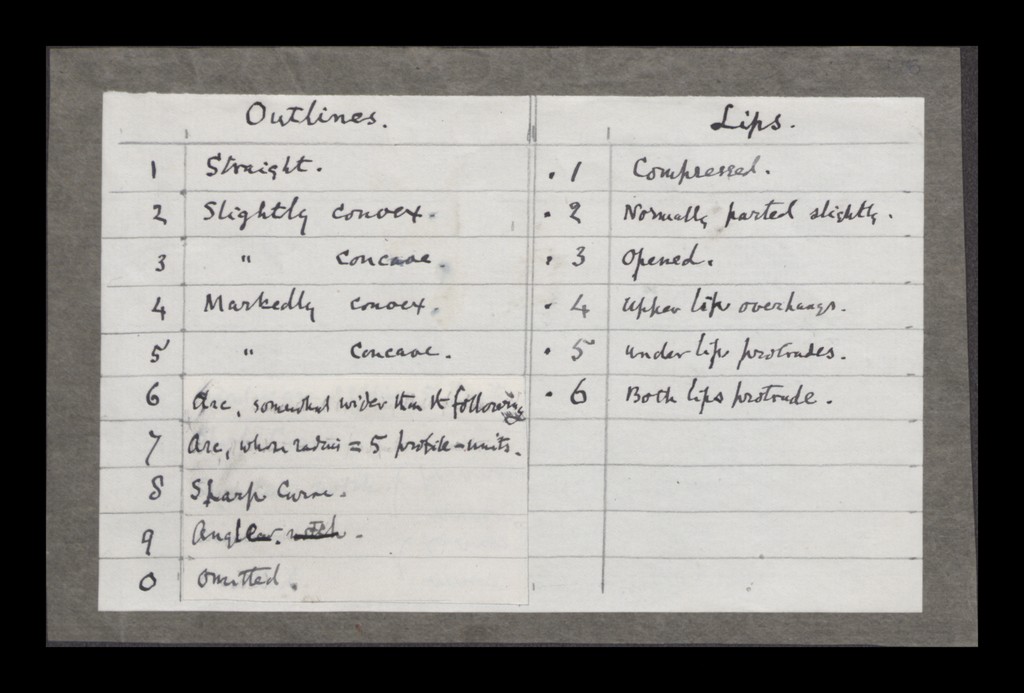 Outlines.
1 Straight.
2 Slightly convex.
3 " concave.
4 Markedly convex.
5 " concave.
6 Arc, somewhat wider than the following
7 Arc, whose radius = 5 profile-units.
8 Sharp Curve.
9 Angle.
0 Omitted.
Lips.
. 1 Compressed.
. 2 Normally parted slightly.
. 3 Opened.
. 4 Upper lip overhangs.
. 5 under lip protrudes.
. 6 Both lips protrude.